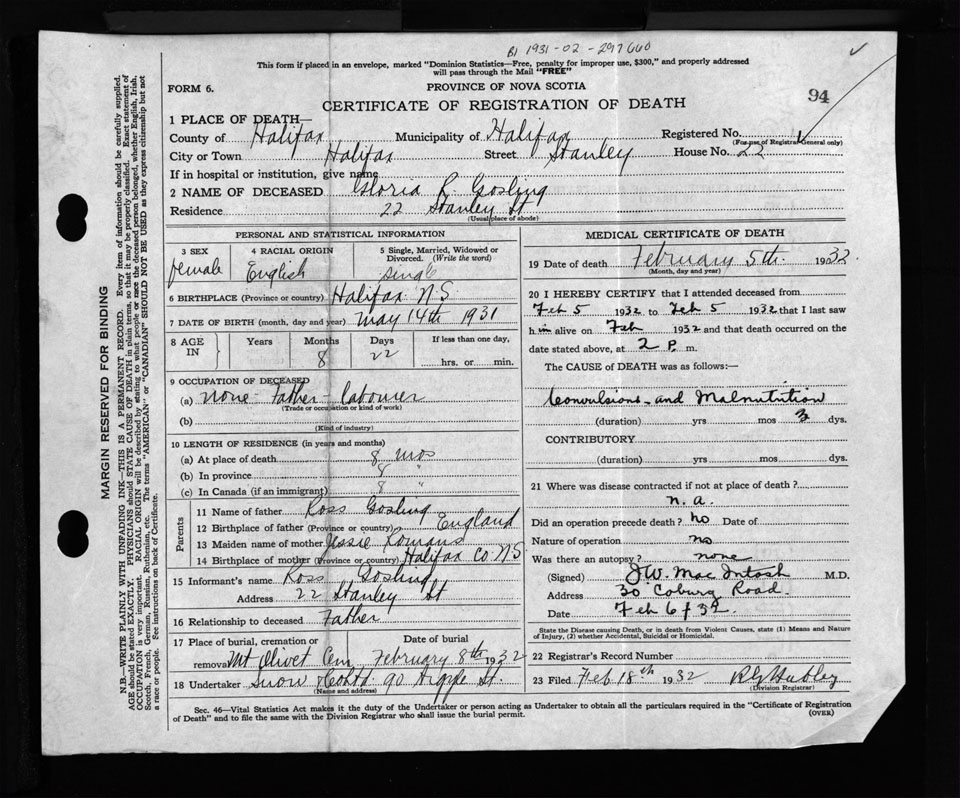 B1 1931-02-297660
This form if placed in an envelope, marked "Dominion Statistics—Free, penalty for improper use, $300," and properly addressed
will pass through the Mail "FREE"
FORM 6.
PROVINCE OF NOVA SCOTIA
94
CERTIFICATE OF REGISTRATION OF DEATH
1 PLACE OF DEATH—
County of Halifax Municipality of Halifax Registered No.
(For use of Registrar General only)
City or Town Halifax Street Stanley House No. 22
If in hospital or institution, give name
2 NAME OF DECEASED Gloria R. Gosling
Residence 22 Stanley St
(Usual place of abode)
PERSONAL AND STATISTICAL INFORMATION
3 SEX female
4 RACIAL ORIGIN English
5 Single, Married, Widowed or
Divorced. (Write the word)
single
6 BIRTHPLACE (Province or country) Halifax N.S
7 DATE OF BIRTH (month, day and year) May 14th 1931
8 AGE IN Years Months 8 Days 22 If less than one day,
hrs. or min.
9 OCCUPATION OF DECEASED
(a) none - Father - labourer
(Trade or occupation or kind of work)
(b)
(Kind of industry)
10 LENGTH OF RESIDENCE (in years and months)
(a) At place of death 8 mos
(b) In province 8 "
(c) In Canada (if an immigrant) 8 "
Parents
11 Name of father Ross Gosling
12 Birthplace of father (Province or country) England
13 Maiden name of mother Jessie Romans
14 Birthplace of mother (Province or country) Halifax Co N.S
15 Informant's name Ross Gosling
Address 22 Stanley St
16 Relationship to deceased Father
17 Place of burial, cremation or Date of burial
removal Mt Olivet Cem February 8th 1932
18 Undertaker Snow & Co Ltd 90 Argyle St.
(Name and address)
MEDICAL CERTIFICATE OF DEATH
19 Date of death February 5th. 1932.
(Month, day and year)
20 I HEREBY CERTIFY that I attended deceased from
Feb 5 1932 to Feb 5 1932 that I last saw
h im alive on Feb 1932 and that death occurred on
date stated above, at 2 P. m.
The CAUSE of DEATH was as follows:—
Convulsions and Malnutrition
(duration) yrs mos 3 dys.
CONTRIBUTORY
(duration) yrs mos dys.
21 Where was disease contracted if not at place of death?
n.a.
Did an operation precede death? no Date of
Nature of operation no
Was there an autopsy? none
(Signed) J.W. MacIntosh M.D.
Address 30 Coburg Road.
Date Feb 6/32.
State the Disease causing Death, or in death from Violent Causes, state (1) Means and Nature
of Injury, (2) whether Accidental, Suicidal or Homicidal.
22 Registrar's Record Number
23 Filed Feb 18th 1932
(Division Registrar)
Sec. 46—Vital Statistics Act makes it the duty of the Undertaker or person acting as Undertaker to obtain all the particulars required in the "Certificate of Registration
of Death" and to file the same with the Division Registrar who shall issue the burial permit.
(OVER)
MARGIN RESERVED FOR BINDING
N.B.—WRITE PLAINLY WITH UNFADING INK—THIS IS A PERMANENT RECORD. Every item of information should be carefully supplied.
AGE should be stated EXACTLY. PHYSICIANS should STATE CAUSE OF DEATH in plain terms, so that it may be properly classified. Exact statement of
OCCUPATION is very important. RACIAL ORIGIN will be described by stating to what people or race the deceased person belonged, whether English, Irish,
Scotch, French, German, Russian, Ruthenian, etc. The terms "AMERICAN" or "CANADIAN" SHOULD NOT BE USED as they express citizenship but not
a race or people. See instructions on back of Certificate.